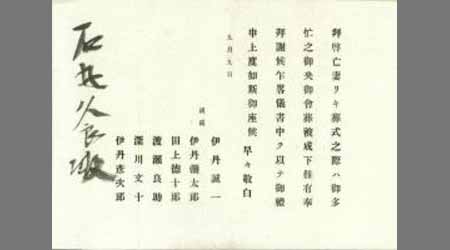 拝啓亡妻リキ葬式之際ハ御多
忙之御央御會葬被成下難有奉
拜謝候乍畧儀書中ヲ以テ御禮
申上度如斯御座候 早々敬白
五月九日
伊丹誠一
親戚
伊丹彌太郎
田上德十郎
渡瀬良助
深川文十
伊丹彦次郎
石井